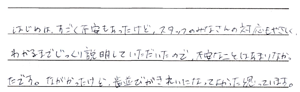 はじめは、すごく不安もあったけど、スタッフのみなさんの対応もやさしく、
わかるまでじっくり説明していただいたので、大変なことはあまりなかっ
たです。ながかったけど、歯並びがきれいになってよかったと思っています。